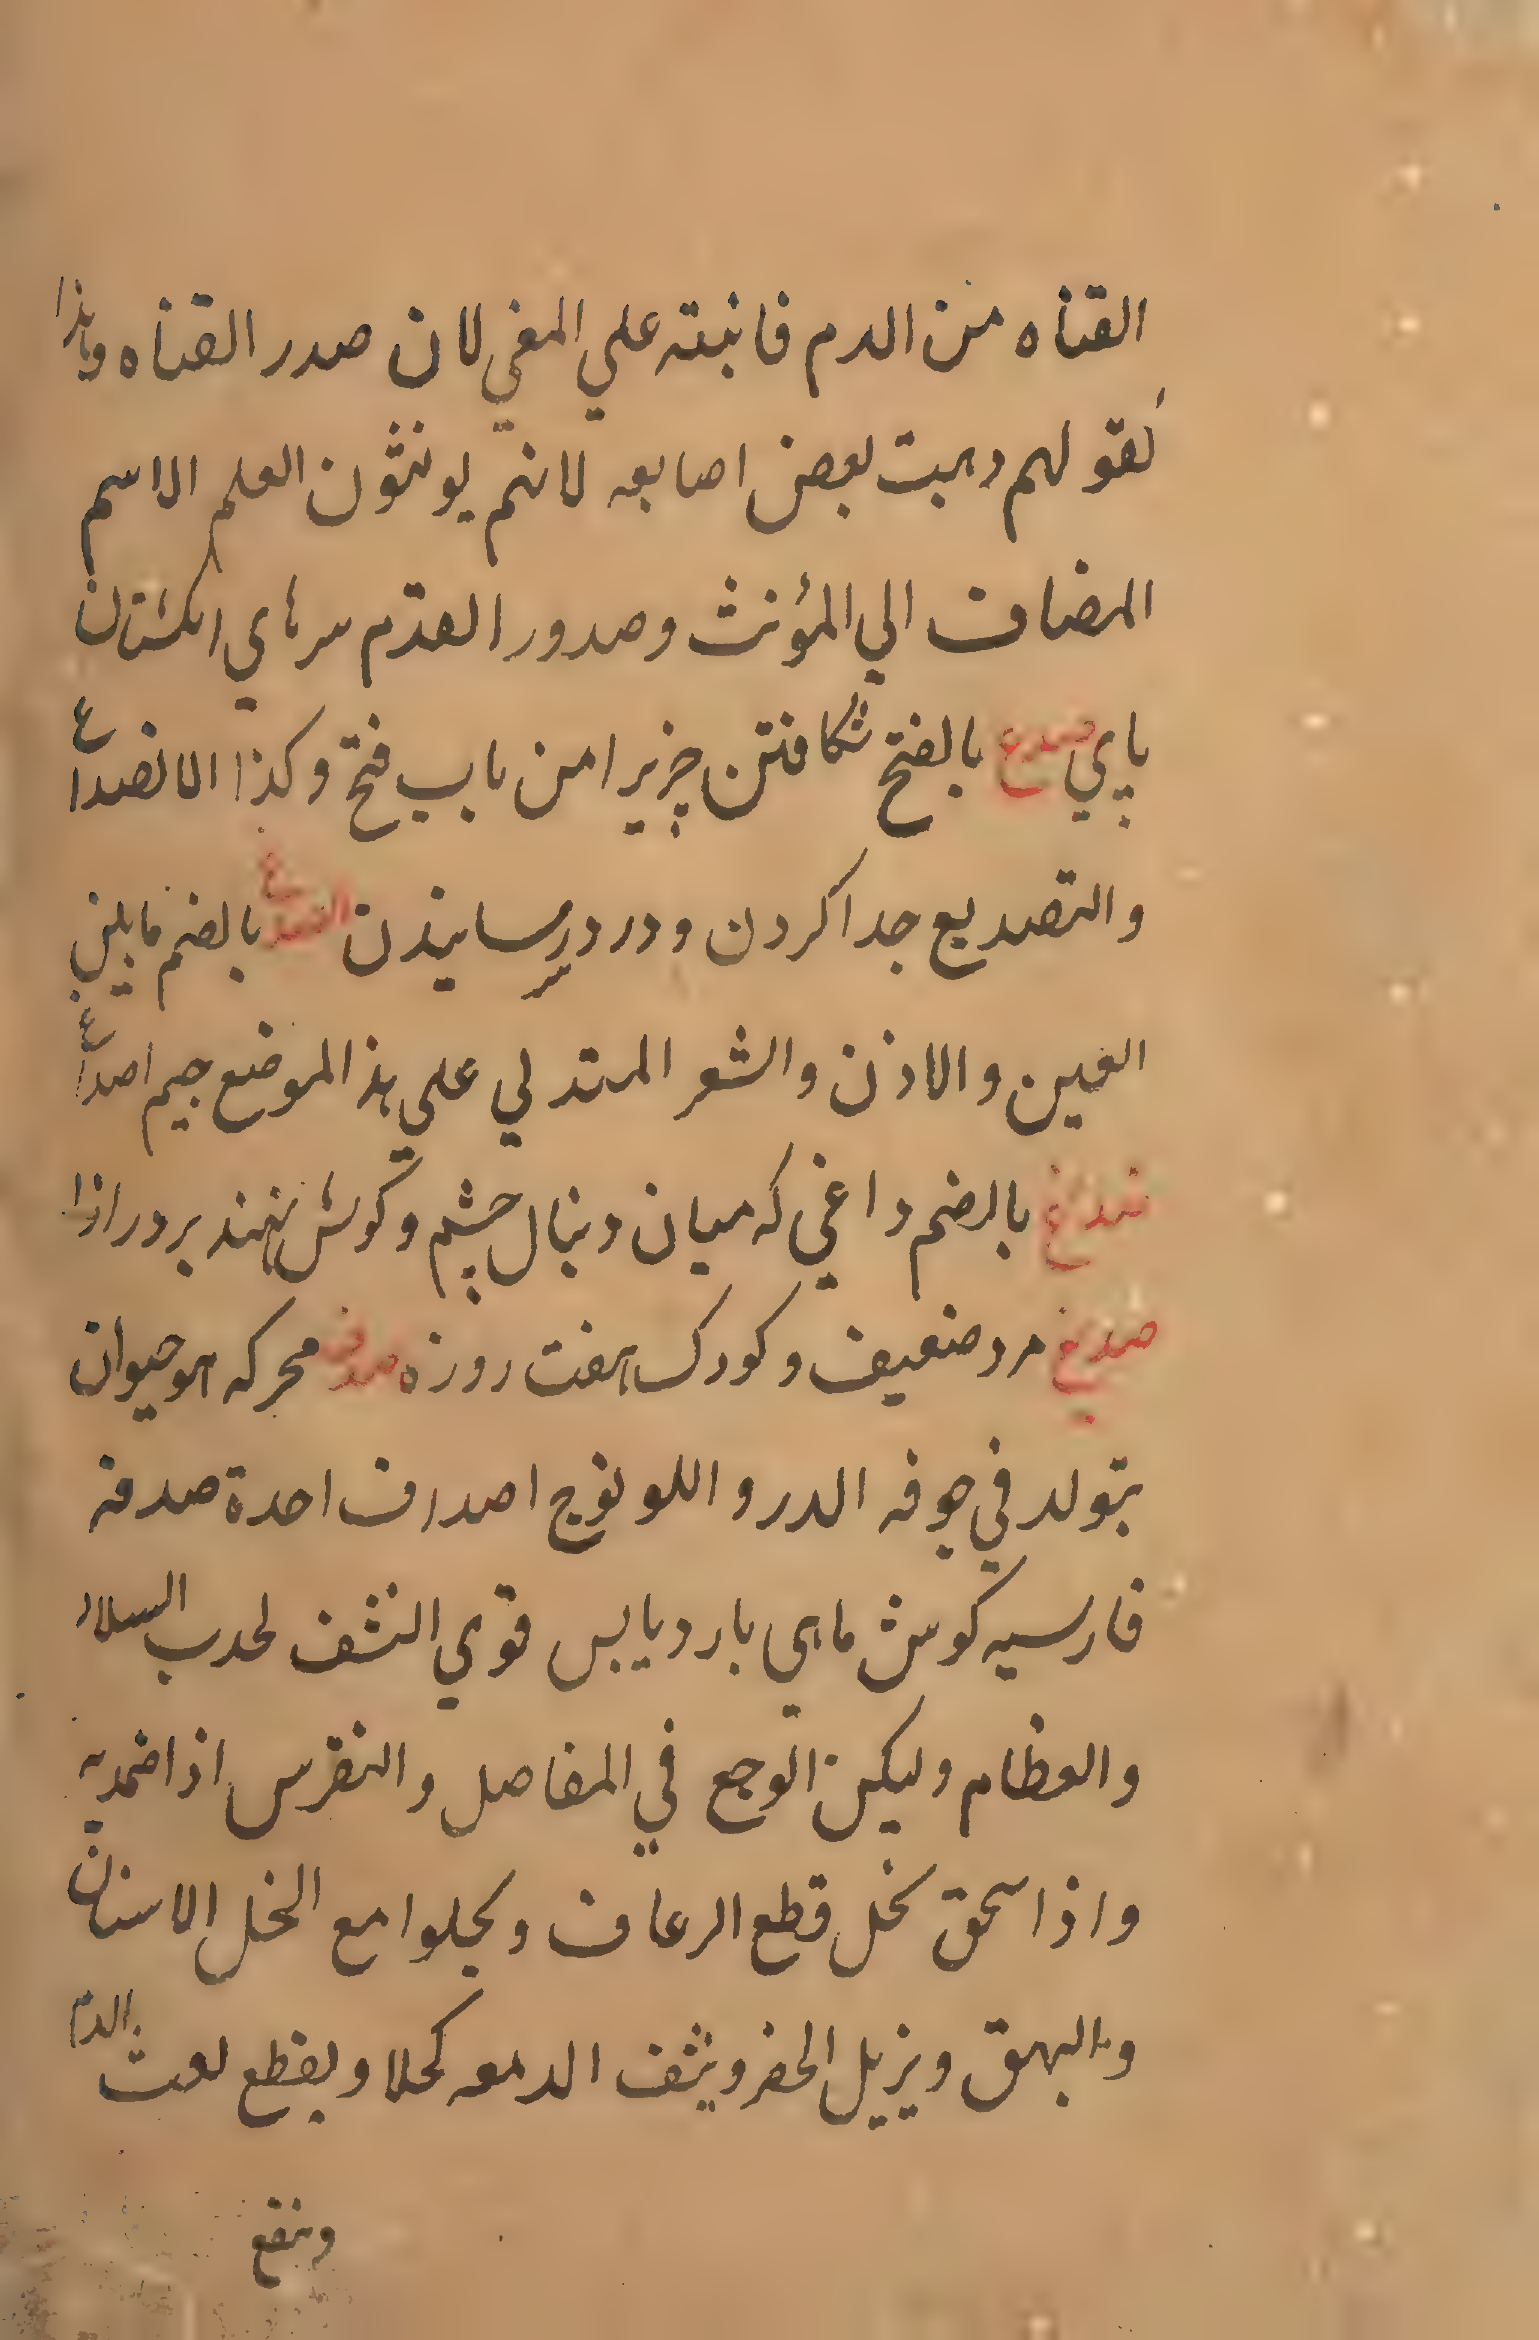 القناه من الدم فانبته علي المغي لان صدر القناه وهذا
كقولهم دهبت بعض اصابعه لانهم يونثون العلم الاسم
المضاف الي المؤنث وصدور القدم سرهاي انكشتان
پاي صدع بالفتح شكافتن چزيرا من باب فتح وكذا الانصداع
والتصديع جدا كردن ودردسر رسانيدن الصدغ بالضم مابين
العين والاذن والشعر المتدلي علي هذا الموضع جيم اصداغ
صداغ بالضم داغي كه ميان دنبال چشم وكوش نهند بر درازا
صديغ مرد ضعيف وكودك هفت روزه صدف محركه هو حيوان
يتولد في جوفه الدر واللولوج اصداف احدة صدفه
فارسيه كوش ماهي بارد يابس قوي النشف لحدب السلاء
والعظام وليكن الوجع في المفاصل والنقرس اذا ضمد به
واذا سحق بخل قطع الرعاف ويجلوا مع الخل الاسنان
والبهق ويزيل الحفر وينثف الدمعه كحلا ويقطع نفث الدم
وينفع